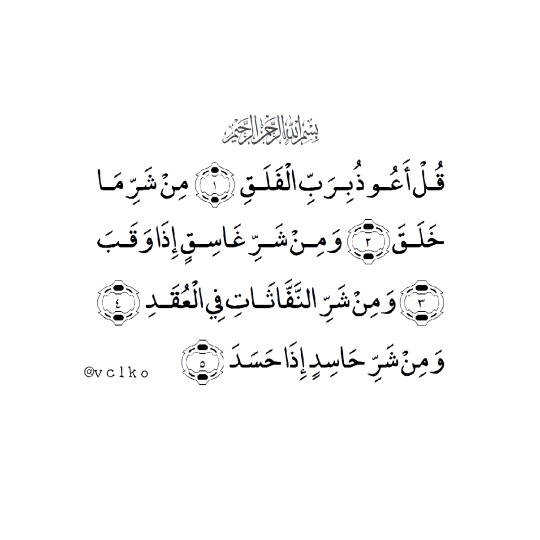 بِسْمِ اللهِ الرَّحْمٰنِ الرَّحِيمِ
قُلْ أَعُوذُ بِرَبِّ الْفَلَقِ ١ مِنْ شَرِّ مَا
خَلَقَ ٢ وَمِنْ شَرِّ غَاسِقٍ إِذَا وَقَبَ
٣ وَمِنْ شَرِّ النَّفَّاثَاتِ فِي الْعُقَدِ ٤
وَمِنْ شَرِّ حَاسِدٍ إِذَا حَسَدَ ٥
@vclko